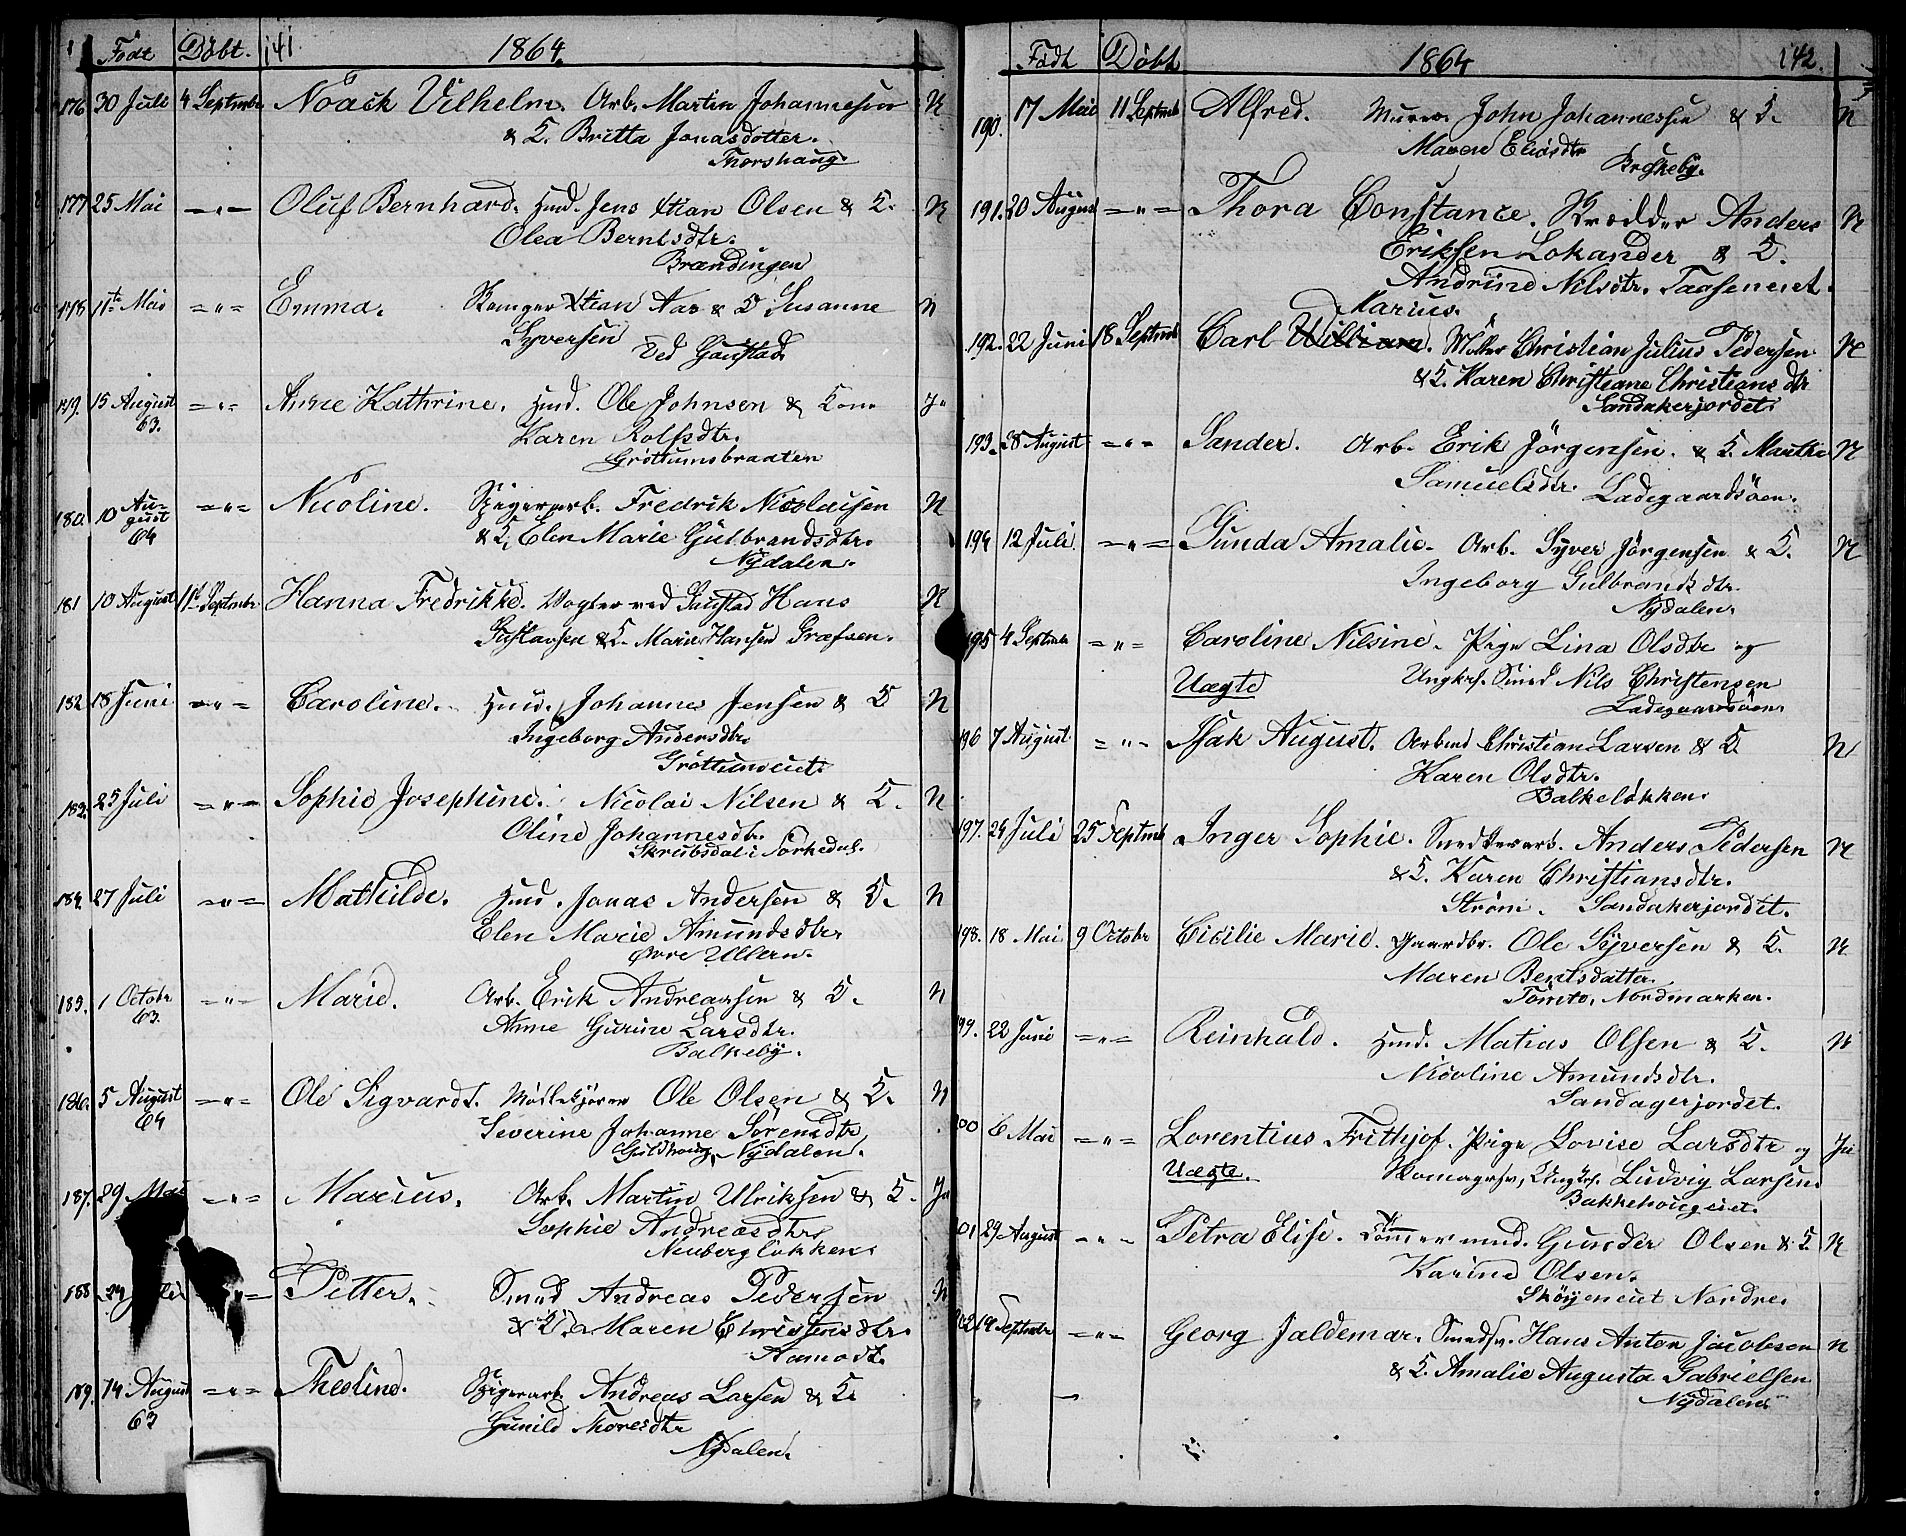 Födt Döbt. 141. 1864.
176 30 Juli 4 Septmbr Noack Vilhelm. Arb. Martin Johannesen N
& K. Britta Jonasdotter.
Thorshaug.
177 25 Mai —"— Oluf Bernhard. Hmd. Jens Xtian Olsen & K. N
Olea Berntsdtr.
Brændingen
178 11te Mai ="= Emma. Xtian Aas & K Susanne N
Syversen Ved Gaustad.
179. 15 August ="= Anne Kathrine. Hmd. Ole Johnsen & Kone Ja
63. Karen Rolfsdtr.
Gröttumsbraaten
180. 10 August ="= Nicoline. Spigerarb. Fredrik Nicolaisen N
64 & K. Elen Marie Gulbrandsdtr.
Nydalen.
181 10 August 11te Septmbr Hanna Fredrikke. Vogter ved Gaustad Hans N
Gustavsen & K. Marie Hansen Græfsen.
182 18 Juni ="= Caroline. Hmd. Johannes Jensen & K N
Ingeborg Andersdtr.
Gröttumseiet.
183. 25 Juli ="= Sophie Josephine. Nicolai Nilsen & K. N
Oline Johannesdtr.
Skrubsdal i Sörkedal.
184. 27 Juli ="= Mathilde. Hmd. Jonas Andersen & K. N
Elen Marie Amundsdtr.
Övre Ullern.
185. 1 Octobr ="= Marie. Arb. Erik Andreassen & K. N
63. Anne Gurine Larsdtr.
Balkeby.
186. 5 August ="= Ole Sigvardt. Ole Olsen & K. N
64 Severine Johanne Sörensdtr
Guldhaug, Nydalen.
187. 29 Mai ="= Marius. Arb. Martin Ulriksen & K. Ja
Sophie Andreasdtr
Neuberglökken.
188 29 = Petter. Smed Andreas Pedersen N
& K. Maren Christensdtr.
Aamodt.
189. 14 August ="= Theoline. Spigerarb. Andreas Larsen & K.
63 Gunild Thoresdtr
Nydalen.
Födt Döbt 1864 142.
190. 17 Mai 11 Septmbr Alfred. Murer John Johannessen & K. N
Maren Eliasdtr
Briskeby.
191. 20 August ="= Thora Constance. Skrædder Anders N
Eriksen Lokander & K.
Andrine Nilsdtr. Taaseneiet.
Marius.
192. 22 Juni 18 Septmbr Carl William. Möller Christian Julius Pedersen N
& K. Karen Christiane Christiansdtr
Sandakerjordet.
193. 28 August ="= Sander. Arb. Erik Jörgensen. & K. Marthe N
Samuelsdtr. Ladegaardsöen.
194 12 Juli. ="= Gunda Amalie. Arb. Syver Jörgensen & K. N
Ingeborg Gulbrandsdtr.
Nydalen.
195 4 Septmbr ="= Caroline Nilsine. Pige Lina Olsdtr og
Uægte Ungk. Smed Nils Christensen
Ladegaardsöen
196 7 August ="= Isak August. Arbmd Christian Larsen & K N
Karen Olsdtr.
Balkelökken.
197. 24 Juli 25 Septmbr Inger Sophie. Snedkerarb. Anders Pedersen N
& K. Karen Christiansdtr.
Ström. Sandakerjordet.
198. 18 Mai 9 Octobr Cicilie Marie. Gaardbr. Ole Syversen & K. N
Maren Berntsdatter.
Tömte, Nordmarken.
199. 22 Juni ="= Reinhald. Hmd. Matias Olsen & K. N
Nicoline Amundsdtr.
Sandagerjordet.
200 6 Mai ="= Lorentius Frithjof. Pige Lovise Larsdtr og Ja
Uægte. Skomagersv, Ungk. Ludvig Larsen
Bakkehougeiet.
201 29 August ="= Petra Elise. Tömmermd. Gunder Olsen & K N
Karine Olsen.
Sköyeneiet Nordre.
202 19 Septmbr ="= Georg Jaldemar. Smedsv. Hans Anton Jacobsen N
& K. Amalie Augusta Gabrielsen
Nydalen